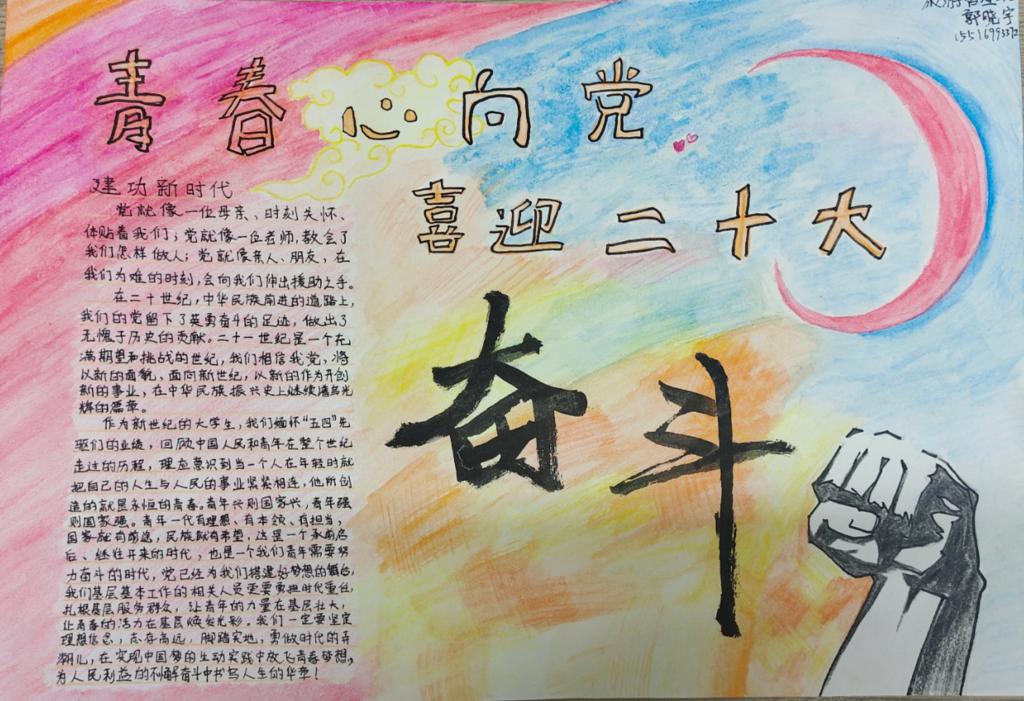 郭晓宇
青春心向党
喜迎二十大
奋斗
建功新时代
党就像一位母亲、时刻关怀、
体贴着我们；党就像一位老师，教会了
我们怎样做人；党就像亲人、朋友，在
我们为难的时刻，会向我们伸出援助之手。
在二十世纪，中华民族前进的道路上，
我们的党留下了英勇奋斗的足迹，做出了
无愧于历史的贡献。二十一世纪是一个充
满期望和挑战的世纪，我们相信我党，将
以新的面貌，面向新世纪，以新的作为开创
新的事业，在中华民族振兴史上继续谱写光
辉的篇章。
作为新世纪的大学生，我们缅怀“五四”先
驱们的业绩，回顾中国人民和青年在整个世纪
走过的历程，理应意识到当一个人在年轻时就
把自己的人生与人民的事业紧紧相连，他所创
造的就是永恒的青春。青年兴则国家兴，青年强
则国家强。青年一代有理想、有本领、有担当，
国家就有前途，民族就有希望，这是一个承前启
后、继往开来的时代，也是一个我们青年需要努
力奋斗的时代，党已经为我们搭建好梦想的舞台，
我们基层基本工作的相关人员更要勇担时代重任，
扎根基层服务群众，让青年的力量在基层壮大，
让青春的活力在基层焕发光彩。我们一定要坚定
理想信念，志存高远，脚踏实地，勇做时代的弄
潮儿，在实现中国梦的生动实践中放飞青春梦想，
为人民利益的不懈奋斗中书写人生的华章！